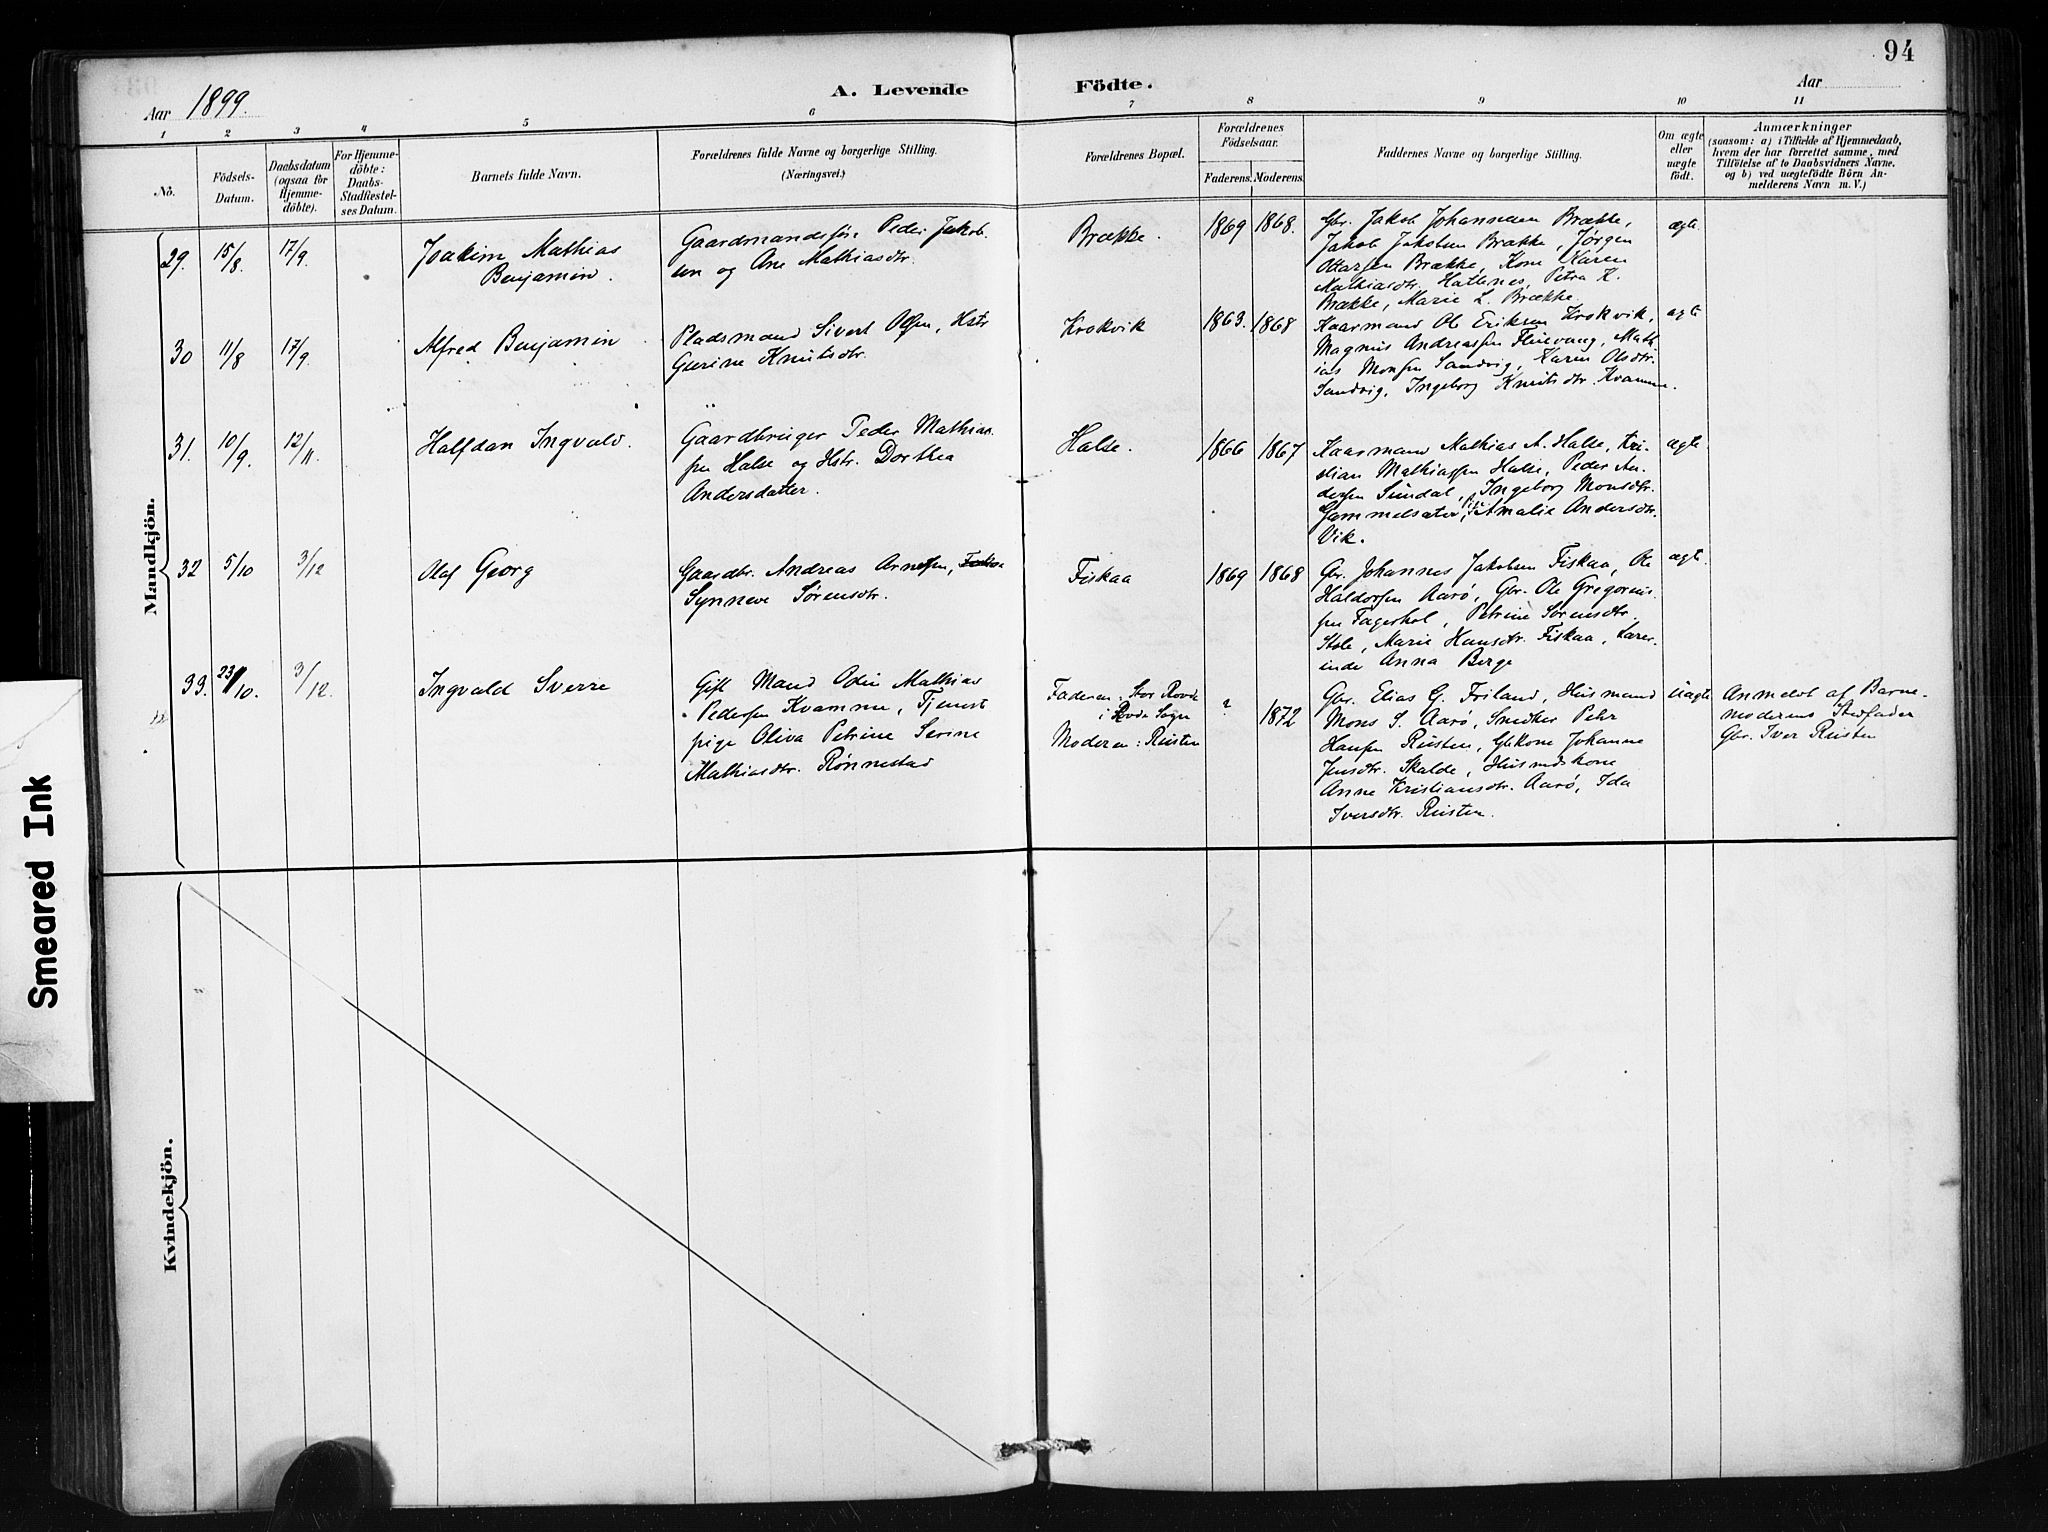 94
Aar 1899.
A. Levende Födte.
Aar
1 2 3 4 5 6 7 8 9 10 11
No.
Födsels-
Datum.
Daabsdatum
(ogsaa for
Hjemme-
döbte).
For Hjemme-
döbte:
Daabs-
Stadfæstel-
ses Datum.
Barnets fulde Navn.
Forældrenes fulde Navne og borgerlige Stilling.
(Næringsvei.)
Forældrenes Bopæl.
Forældrenes
Födselsaar.
Faderens. Moderens.
Faddernes Navne og borgerlige Stilling.
Om ægte
eller
uægte
födt.
Anmærkninger
(saasom: a) i Tilfælde af Hjemmedaab,
hvem der har forrettet samme, med
Tilföielse af to Daabsvidners Navne,
og b) ved uægtefödte Börn An-
melderens Navn m. V.)
Mandkjön.
29. 15/8. 17/9.
Joakim Mathias
Benjamin.
Gaardmandssøn Peder Jakob-
sen og Ane Mathiasdtr.
Brække.
1869 1868.
Gbr. Jakob Johannesen Brække,
Jakob Jakobsen Brække, Jørgen
Ottarsen Brække, Kone Karen
Mathiasdtr. Hatlenes, Petra K.
Brække, Marie L. Brække.
ægte
30 11/8 17/9.
Alfred Benjamin
Pladsmand Sivert Olsen, Hstr
Gurine Knutsdtr.
Krokvik
1863. 1868
Kaarmand Ole Eriksen Krokvik,
Magnus Andreassen Fluevaag, Math-
ias Monsen Sandvig, Karen Olsdtr.
Sandvig, Ingeborg Knutsdtr. Kvamme.
ægte
31. 10/9. 12/11.
Halfdan Ingvald.
Gaardbruger Peder Mathias-
sen Halse og Hstr. Dorthea
Andersdatter.
Halse.
1866 1867
Kaarmand Mathias A. Halse, Kri-
stian Mathiassen Halse, Peder An-
dersen Sundal, Ingeborg Monsdtr.
Gammelsæter, Amalie Andersdtr.
Vik.
ægte
32 5/10 3/12
Olaf Georg
Gaardbr. Andreas Arnesen,
Synneve Sørensdtr.
Fiskaa
1869 1868
Gbr. Johannes Jakobsen Fiskaa, Ole
Haldorsen Aarø, Gbr. Ole Gregorius-
sen Fagerhol, Petrine Sørensdtr.
Stole, Marie Hansdtr. Fiskaa, Lærer-
inde Anna Berge
ægte
33. 23/10. 3/12.
Ingvald Sverre
Gift Mand Odin Mathias
Pedersen Kvamme, Tjenest-
pige Oliva Petrine Serine
Mathiasdtr. Rønnestad
Faderen: Stor Rovde
i Rovde Sogn
Moderen: Rusten
? 1872
Gbr. Elias G. Friland, Husmand
Mons S. Aarø, Snedker Petr
Hansen Rusten, Gbkone Johanne
Jensdtr. Skalde, Husmdskone
Anne Kristiansdtr. Aarø, Ida
Iversdtr. Rusten.
uægte
Anmeldt af Barne-
moderens Stedfader
Gbr. Iver Rusten
Kvindekjön.
Smeared Ink